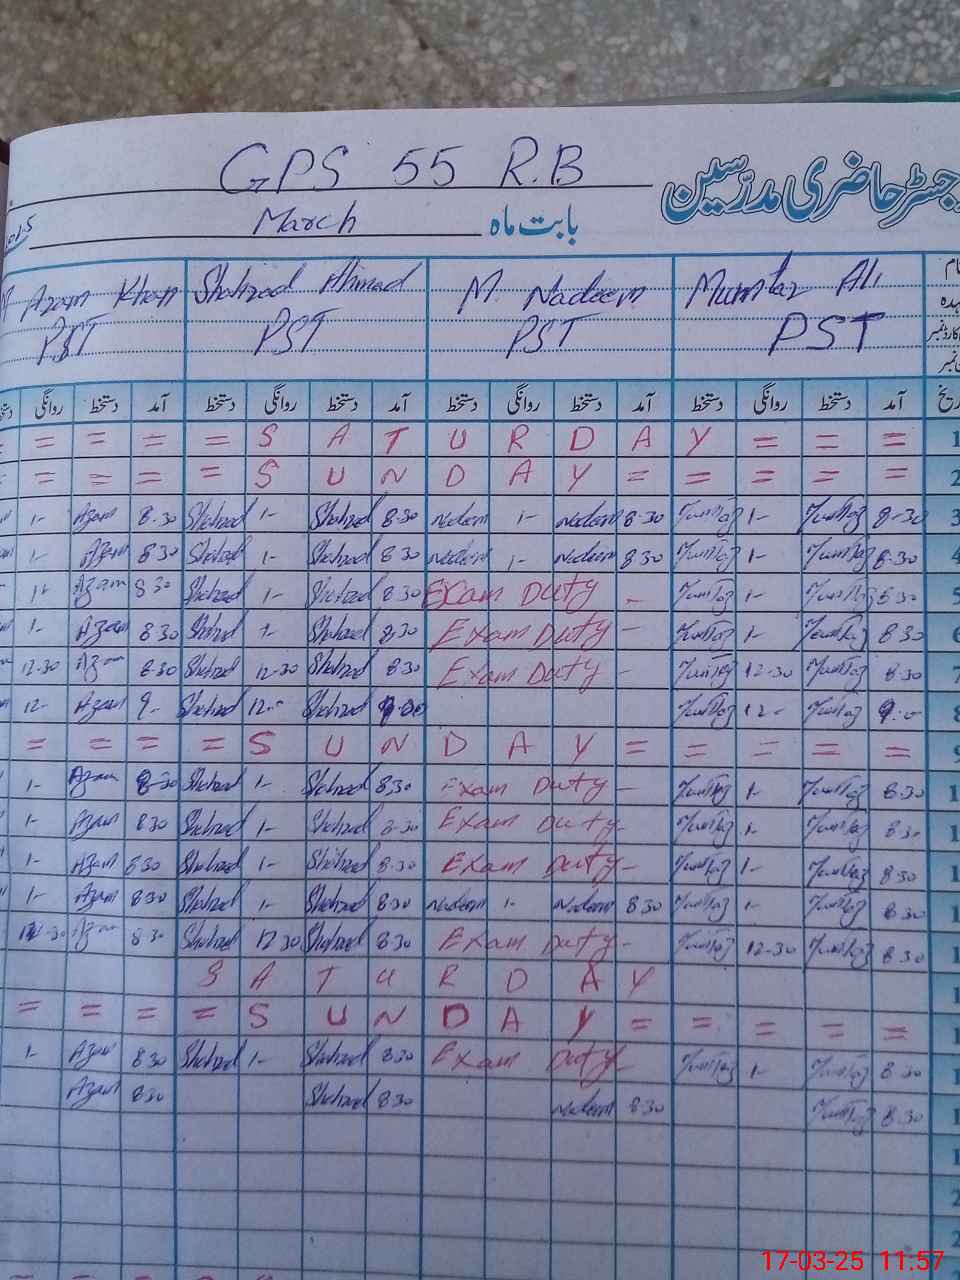 GPS 55 R.B
رجسٹر حاضری مدرّسین
March بابت ماہ
Azam Khan Shahzad Ahmad M. Nadeem Mumtaz Ali
PST PST PST PST
روانگی دستخط آمد دستخط روانگی دستخط آمد دستخط روانگی دستخط آمد دستخط روانگی دستخط آمد
= = = = = S A T U R D A Y = = = 1
= = = = = S U N D A Y = = = = = 2
1- Azam 8-30 Shahzad 1- Shahzad 8-30 Nadeem 1- Nadeem 8-30 Mumtaz 1- Mumtaz 8-30 3
1- Azam 8 30 Shahzad 1- Shahzad 8 30 Nadeem 1- Nadeem 8 30 Mumtaz 1- Mumtaz 8-30 4
1- Azam 8 30 Shahzad 1- Shahzad 8 30 Exam Duty - Mumtaz 1- Mumtaz 8 30 5
1- Azam 8 30 Shahzad 1- Shahzad 8 30 Exam Duty - Mumtaz 1- Mumtaz 8 30 6
12-30 Azam 8-30 Shahzad 12-30 Shahzad 8 30 Exam Duty - Mumtaz 12-30 Mumtaz 8-30 7
12- Azam 9- Shahzad 12- Shahzad 9-00 Mumtaz 12- Mumtaz 8
= = = = S U N D A Y = = = = = 9
1- Azam 8-30 Shahzad 1- Shahzad 8,30 Exam Duty - Mumtaz 1- Mumtaz 8-30
1- Azam 8 30 Shahzad 1- Shahzad 8-30 Exam Duty - Mumtaz 1- Mumtaz 8 30
1- Azam 8 30 Shahzad 1- Shahzad 8-30 Exam Duty - Mumtaz 1- Mumtaz 8 30
1- Azam 8 30 Shahzad 1- Shahzad 8-30 Nadeem 1- Nadeem 8 30 Mumtaz 1- Mumtaz 8 30
Azam 8 30 Shahzad 12 30 Shahzad 8 30 Exam Duty - Mumtaz 12-30 Mumtaz 8 30
S A T U R D A Y
= = = = S U N D A Y = = = = =
1- Azam 8 30 Shahzad 1- Shahzad 8 30 Exam Duty - Mumtaz 1- Mumtaz 8 30
Azam 8 30 Shahzad 8 30 Nadeem 8 30 Mumtaz 8 30
17-03-25 11:57